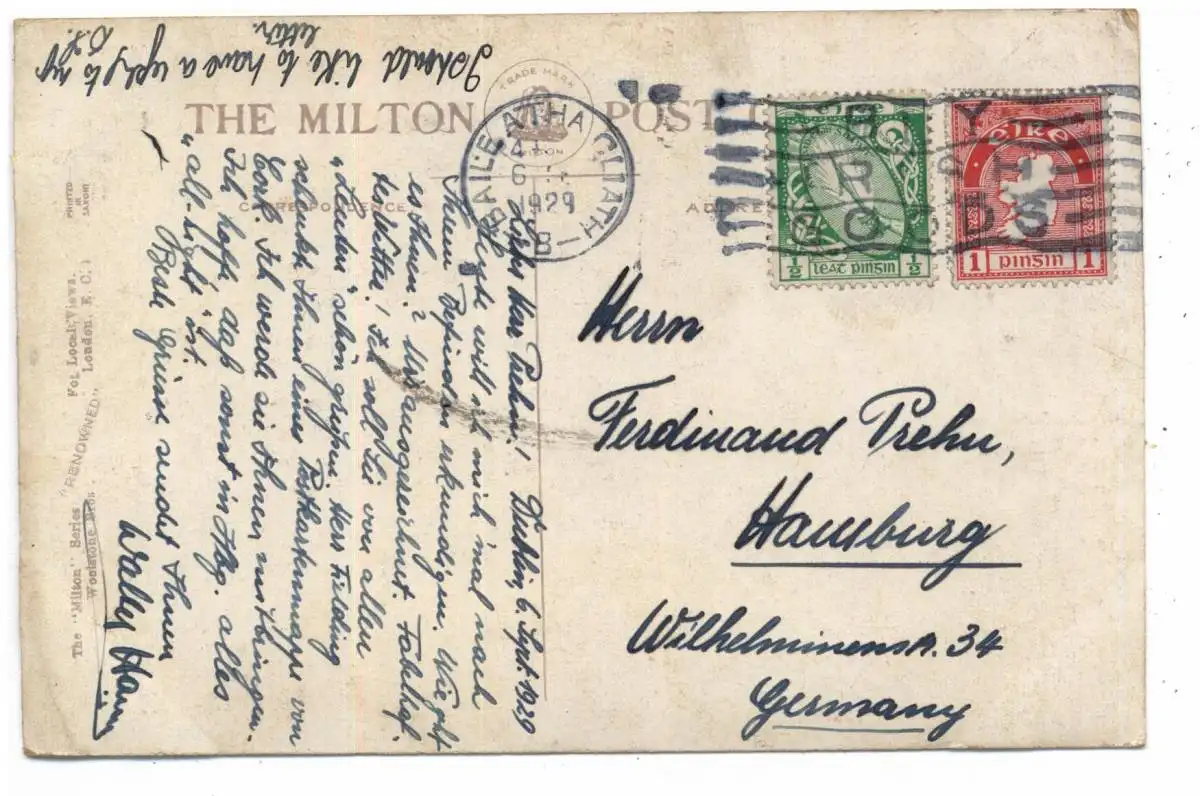 I should like to have a reply to my
letter.
D.F.
THE MILTON POST
TRADE MARK
LONDON
CORRESPONDENCE
BAILE ATHA CLIATH
6
1929
éire
½ leat pinsin ½
éire
1 pinsin 1
Dublin, 6. Sept. 1929
Lieber Herr Prehn!
Heute will ich mich mal nach
Ihrem Befinden erkundigen. Wie geht
es Ihnen? Uns ausgezeichnet. Fabelhaf-
tes Wetter! Ich soll Sie von allen
"Leuten" schön grüßen. Herr Fielding
schenkt Ihnen eine Postkartenmappe von
Cork. Ich werde sie Ihnen mitbringen.
Ich hoffe, daß sonst in Hbg. alles
"all-right" ist.
Beste Grüsse sendet Ihnen
Walter
Herrn
Ferdinand Prehn,
Hamburg
Wilhelminenstr. 34
Germany
PRINTED
IN
SAXONY
The "Milton" Series "RENOWNED" For Local Views.
Woolstone Bros London, E. C. 1